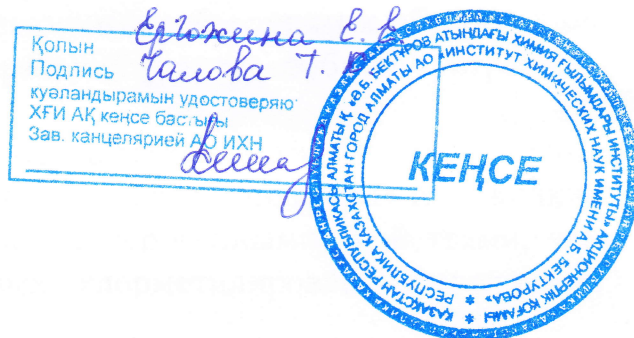 Қолын Ергожина Е. Е.
Подпись Чалова Т. К.
куәландырамын удостоверяю
ХҒИ АҚ кеңсе бастығы
Зав. канцелярией АО ИХН
ҚАЗАҚСТАН РЕСПУБЛИКАСЫ АЛМАТЫ Қ. «Ә.Б. БЕКТҰРОВ АТЫНДАҒЫ ХИМИЯ ҒЫЛЫМДАРЫ ИНСТИТУТЫ» АКЦИОНЕРЛІК ҚОҒАМЫ
РЕСПУБЛИКА КАЗАХСТАН ГОРОД АЛМАТЫ АО «ИНСТИТУТ ХИМИЧЕСКИХ НАУК ИМЕНИ А.Б. БЕКТУРОВА»
КЕҢСЕ